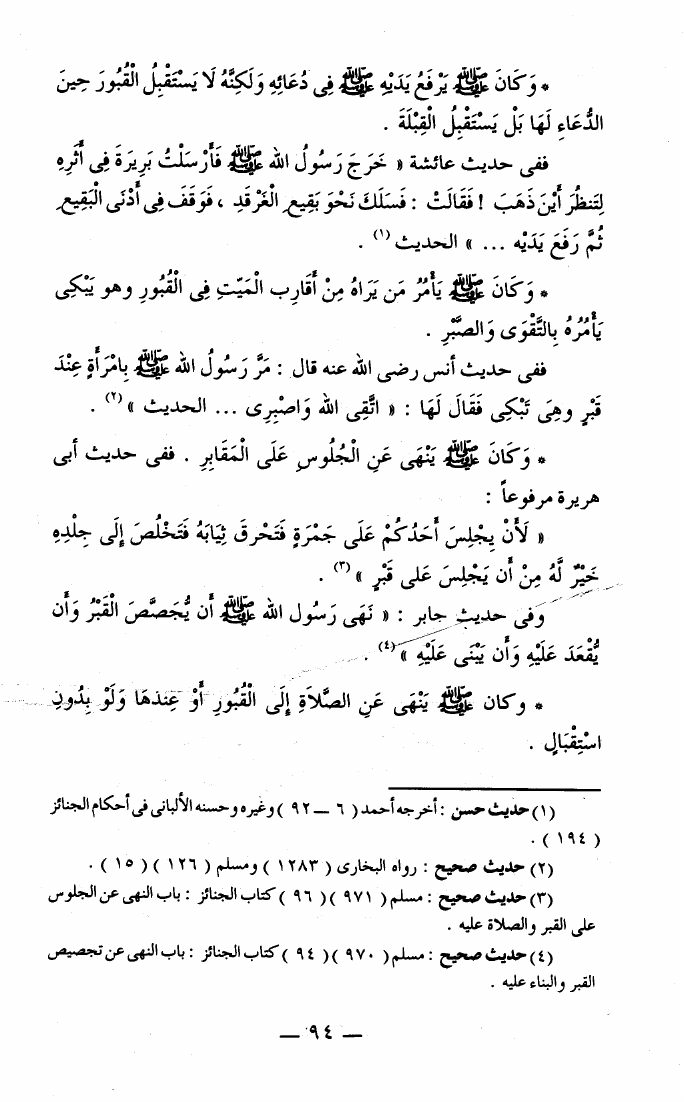 * وَكَانَ ﷺ يَرْفَعُ يَدَيْهِ ﷺ فِى دُعَائِهِ وَلَكِنَّهُ لَا يَسْتَقْبِلُ الْقُبُورَ حِينَ
الدُّعَاءِ لَهَا بَلْ يَسْتَقْبِلُ الْقِبْلَةَ .
ففى حديث عائشة « خَرَجَ رَسُولُ الله ﷺ فَأَرْسَلْتُ بَرِيرَةَ فِى أَثَرِهِ
لِتَنظُرَ أَيْنَ ذَهَبَ ! فَقَالَتْ : فَسَلَكَ نَحْوَ بَقِيعِ الْغَرْقَدِ ، فَوَقَفَ فِى أَدْنَى الْبَقِيعِ
ثُمَّ رَفَعَ يَدَيْهِ ... » الحديث (١) .
* وَكَانَ ﷺ يَأْمُرُ مَن يَرَاهُ مِنْ أَقَارِب الْمَيِّتِ فِى الْقُبُورِ وهو يَبْكِى
يَأْمُرُهُ بِالتَّقْوَى وَالصَّبْرِ .
ففى حديث أنس رضى الله عنه قال : مَرَّ رَسُولُ الله ﷺ بِامْرَأَةٍ عِنْدَ
قَبْرٍ وهِىَ تَبْكِى فَقَالَ لَهَا : « اتَّقِى الله وَاصْبِرِى ... الحديث » (٢) .
* وَكَانَ ﷺ يَنْهَى عَنِ الْجُلُوسِ عَلَى الْمَقَابِرِ . ففى حديث أبى
هريرة مرفوعاً :
« لَأَنْ يَجْلِسَ أَحَدُكُمْ عَلَى جَمْرَةٍ فَتَحْرِقَ ثِيَابَهُ فَتَخْلُصَ إِلَى جِلْدِهِ
خَيْرٌ لَهُ مِنْ أَن يَجْلِسَ عَلى قَبْرٍ » (٣) .
وفى حديث جابر : « نَهَى رَسُول الله ﷺ أَن يُجَصَّصَ الْقَبْرُ وَأَن
يُقْعَدَ عَلَيْهِ وَأَن يُبْنَى عَلَيْهِ » (٤) .
* وكان ﷺ يَنْهَى عَنِ الصَّلَاةِ إِلَى الْقُبُورِ أَوْ عِندهَا وَلَوْ بِدُونِ
اسْتِقْبَالٍ .
(١) حديث حسن : أخرجه أحمد ( ٦ – ٩٢ ) وغيره وحسنه الألبانى فى أحكام الجنائز
( ١٩٤ ) .
(٢) حديث صحيح : رواه البخارى ( ١٢٨٣ ) ومسلم ( ١٢٦ ) ( ١٥ ) .
(٣) حديث صحيح : مسلم ( ٩٧١ ) ( ٩٦ ) كتاب الجنائز : باب النهى عن الجلوس
على القبر والصلاة عليه .
(٤) حديث صحيح : مسلم ( ٩٧٠ ) ( ٩٤ ) كتاب الجنائز : باب النهى عن تجصيص
القبر والبناء عليه .
— ٩٤ —